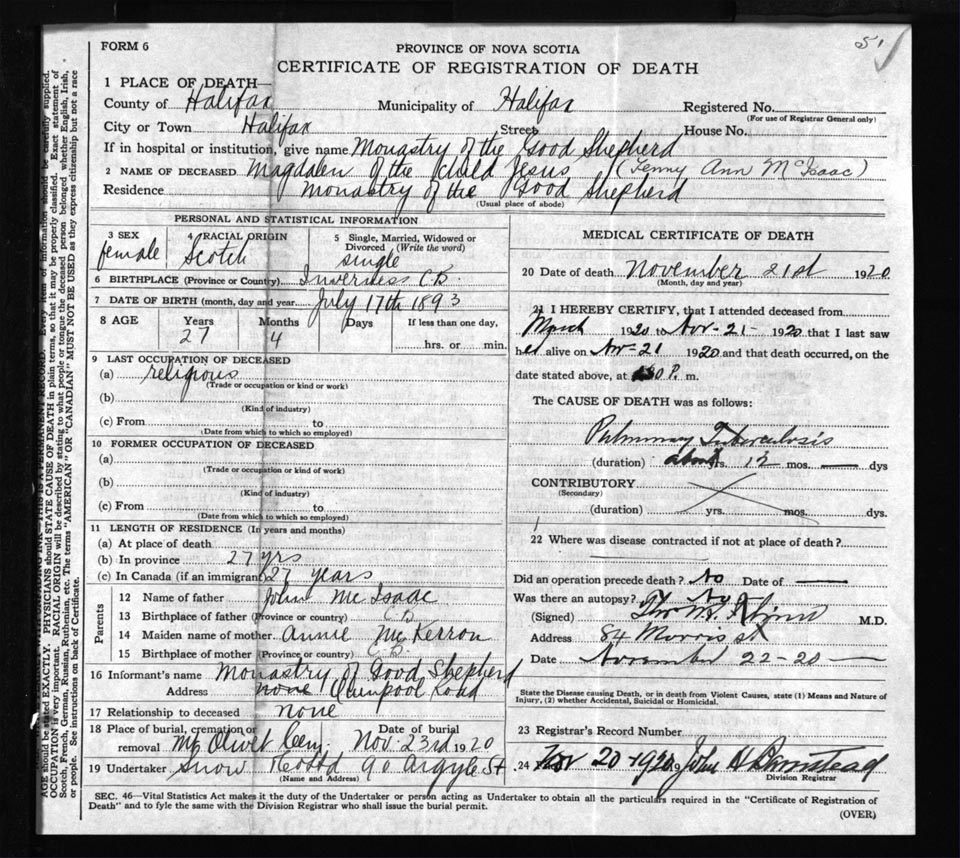 51
FORM 6
PROVINCE OF NOVA SCOTIA
CERTIFICATE OF REGISTRATION OF DEATH
1 PLACE OF DEATH—
County of Halifax Municipality of Halifax Registered No.
(For use of Registrar General only)
City or Town Halifax Street House No.
If in hospital or institution, give name Monastry of the Good Shepherd
2 NAME OF DECEASED Magdalen of the Child Jesus (Fenny Ann McIsaac)
Residence Monastry of the Good Shepherd
(Usual place of abode)
PERSONAL AND STATISTICAL INFORMATION
3 SEX 4 RACIAL ORIGIN 5 Single, Married, Widowed or
Divorced (Write the word)
female Scotch single
6 BIRTHPLACE (Province or County) Inverness C.B.
7 DATE OF BIRTH (month, day and year) July 17th 1893
8 AGE Years Months Days If less than one day,
27 4 hrs. or min.
9 LAST OCCUPATION OF DECEASED
(a) religious
(Trade or occupation or kind or work)
(b)
(Kind of industry)
(c) From to
(Date from which to which so employed)
10 FORMER OCCUPATION OF DECEASED
(a)
(Trade or occupation or kind of work)
(b)
(Kind of industry)
(c) From to
(Date from which to which so employed)
11 LENGTH OF RESIDENCE (In years and months)
(a) At place of death
(b) In province 27 yrs
(c) In Canada (if an immigrant) 27 years
Parents
12 Name of father John McIsaac
13 Birthplace of father (Province or country) C.B
14 Maiden name of mother Annie McKerron
15 Birthplace of mother (Province or country) C.B.
16 Informant's name Monastry of Good Shepherd
Address none Quinpool Road
17 Relationship to deceased none
18 Place of burial, cremation or Date of burial
removal Mt Olivet Cem. Nov. 23rd 1920
19 Undertaker Snow 90 Argyle St
(Name and Address)
MEDICAL CERTIFICATE OF DEATH
20 Date of death November 21st 1920
(Month, day and year)
21 I HEREBY CERTIFY, that I attended deceased from
March 1920 to Nov-21- 1920 that I last saw
her alive on Nov-21 1920 and that death occurred, on the
date stated above, at P. m.
The CAUSE OF DEATH was as follows:
Pulmonary Tuberculosis
(duration) about yrs. 12 mos. — dys
CONTRIBUTORY
(Secondary)
(duration) yrs. mos. dys.
22 Where was disease contracted if not at place of death?
Did an operation precede death? No Date of —
Was there an autopsy? No
(Signed) M.D.
Address 84 Morris St
Date November 22-20 —
State the Disease causing Death, or in death from Violent Causes, state (1) Means and Nature of
Injury, (2) whether Accidental, Suicidal or Homicidal.
23 Registrar's Record Number
24 Nov 20 1920 John H
Division Registrar
SEC. 46—Vital Statistics Act makes it the duty of the Undertaker or person acting as Undertaker to obtain all the particulars required in the "Certificate of Registration of
Death" and to fyle the same with the Division Registrar who shall issue the burial permit.
(OVER)
AGE should be stated EXACTLY. PHYSICIANS should STATE CAUSE OF DEATH in plain terms, so that it may be properly classified. Exact statement of
OCCUPATION is very important. RACIAL ORIGIN will be described by stating to what people or tongue the deceased person belonged whether English, Irish,
Scotch, French, German, Russian, Ruthenian, etc. The terms "AMERICAN" OR "CANADIAN" MUST NOT BE USED as they express citizenship but not a race
or people. See instructions on back of Certificate.